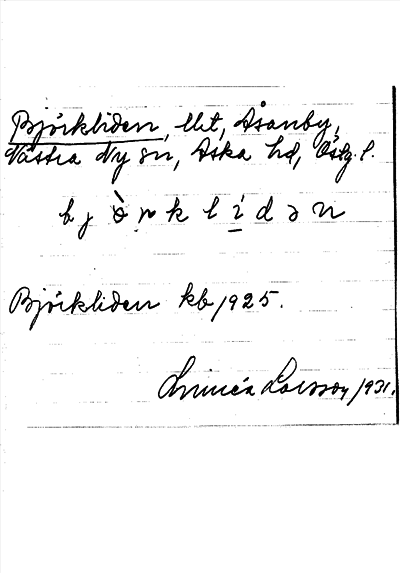 Björkliden, llt, Åsanby,
Västra Ny sn, Aska hd, Östg. l.
bjòrklídən
Björkliden kb 1925.
Linnéa Larsson 1931.